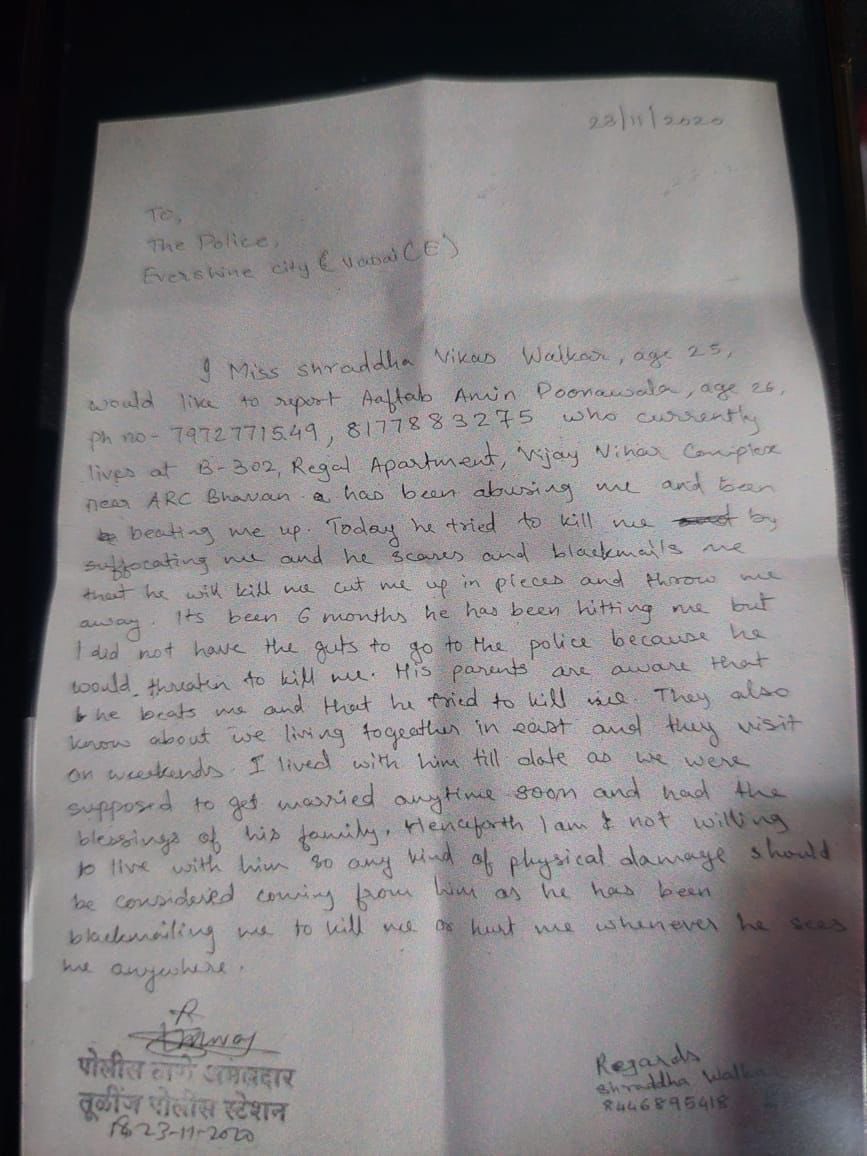 23/11/2020
To,
The Police,
Evershine city ( Vasai (E)
I Miss Shraddha Vikas Walkar, age 25,
would like to report Aaftab Amin Poonawala, age 26,
ph no- 7972771549, 8177883275 who currently
lives at B-302, Regal Apartment, Vijay Vihar Complex
near ARC Bhavan has been abusing me and been
beating me up. Today he tried to kill me by
suffocating me and he scares and blackmails me
that he will kill me cut me up in pieces and throw me
away. Its been 6 months he has been hitting me but
I did not have the guts to go to the police because he
would threatin to kill me. His parents are aware that
he beats me and that he tried to kill me. They also
know about we living togeather in east and they visit
on weekends. I lived with him till date as we were
supposed to get married anytime soon and had the
blessings of his family. Henceforth I am not willing
to live with him so any kind of physical damage should
be considered coming from him as he has been
blackmailing me to kill me or hurt me whenever he sees
me anywhere.
पोलीस ठाणे अंमलदार
तूळींज पोलीस स्टेशन
23-11-2020
Regards
Shraddha Walkar
8446895418